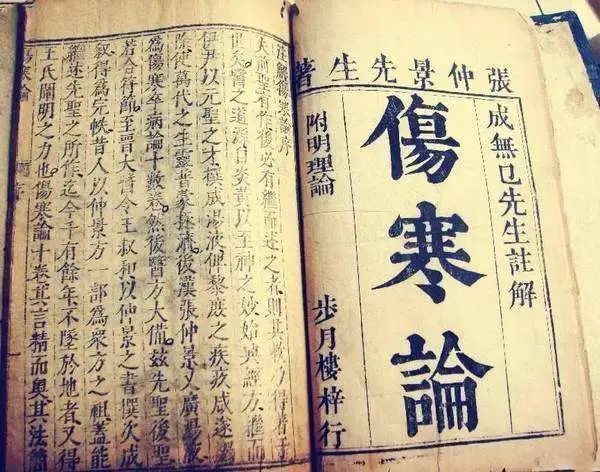 張仲景先生著
成無已先生註解
傷寒論
附明理論
步月樓梓行
註解傷寒論序
夫前聖有作後必有繼而述之者則其教乃得著于
世矣醫之道源自炎黃以至神之妙始興經方繼而
伊尹以元聖之才撰成湯液俾黎庶之疾疚咸遂蠲
除使萬代之生靈普蒙拯濟後漢張仲景又廣湯液
為傷寒卒病論十數卷然後醫方大備茲先聖後聖
若合符節至晉太醫令王叔和以仲景之書撰次成
敘得為完帙昔人以仲景方一部為衆方之祖蓋能
繼述先聖之所作迄今千有餘年不墜於地者又得
王氏闡明之力也傷寒論十卷其言精而奧其法簡
傷寒論